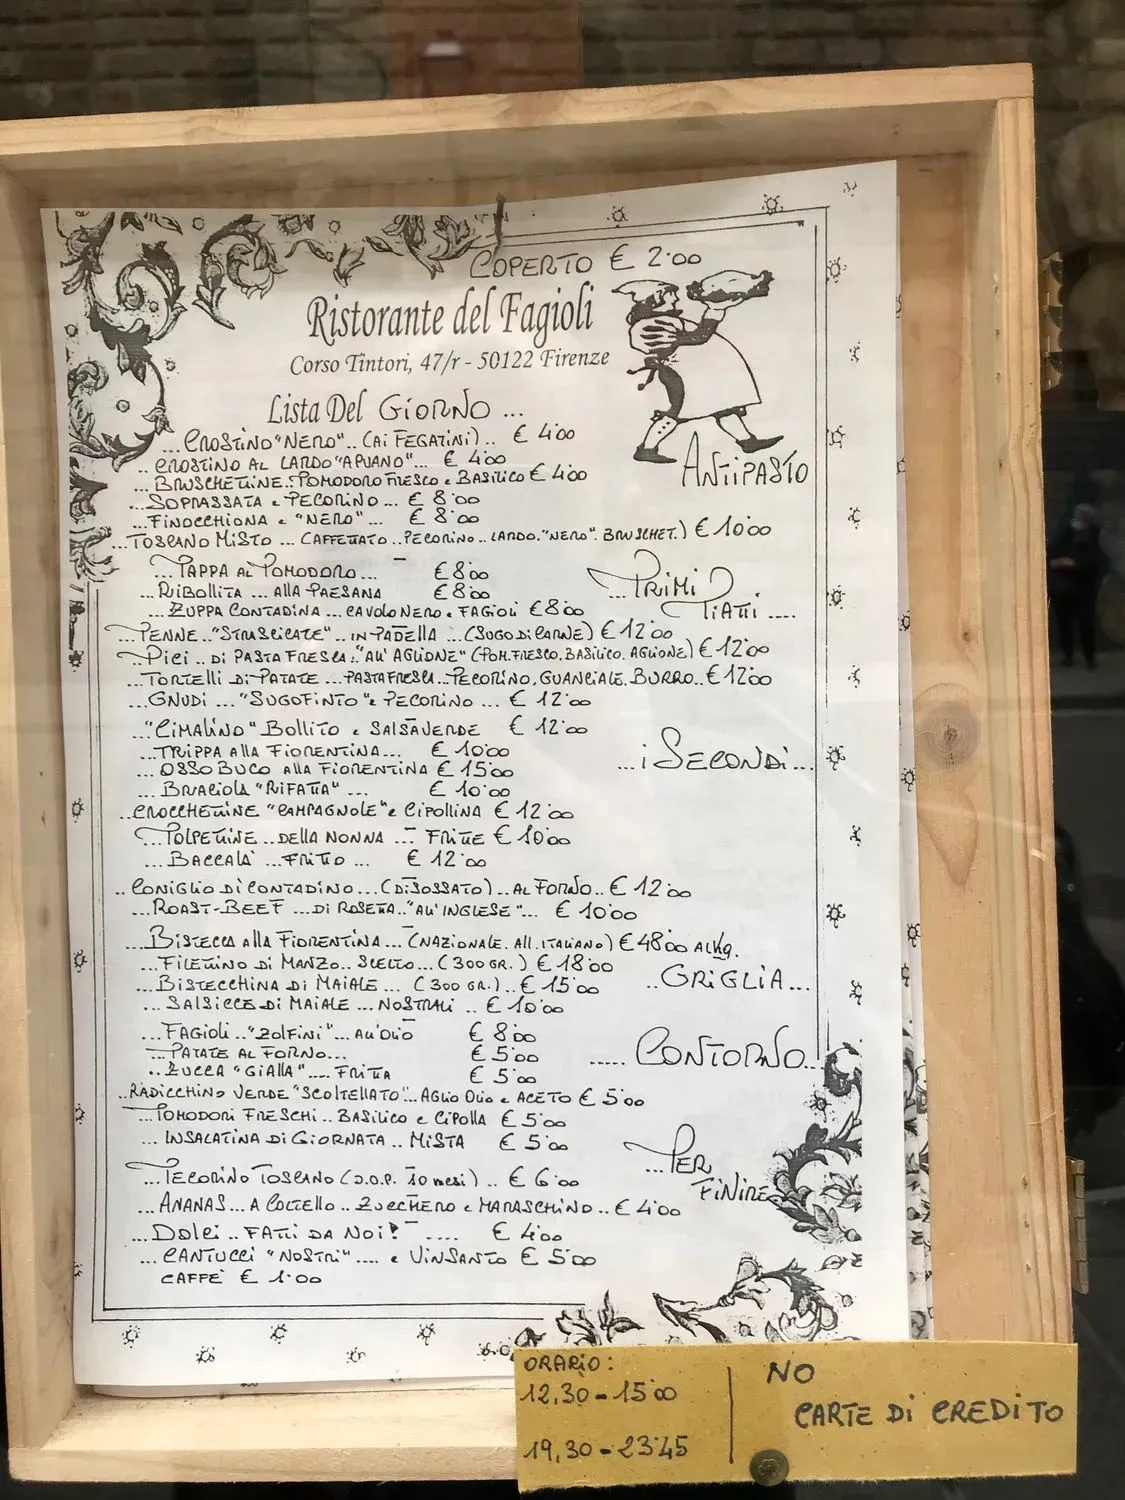 COPERTO € 2.00
Ristorante del Fagioli
Corso Tintori, 47/r - 50122 Firenze
Lista Del GIORNO ...
... CROSTINO "NERO".. (AI FEGATINI).. € 4.00
.. CROSTINO AL LARDO "APUANO"... € 4.00
.. BRUSCHETTINE: POMODORO FRESCO e BASILICO € 4.00
ANTIPASTO
... SOPRASSATA e PECORINO ... € 8.00
... FINOCCHIONA e "NERO"... € 8.00
... TOSCANO MISTO ... CAFFETTATO.. PECORINO.. LARDO. "NERO". BRUSCHET.) € 10.00
... PAPPA AL POMODORO ... € 8.00
... RIBOLLITA ... ALLA PAESANA € 8.00
... PRIMI PIATTI ....
... ZUPPA CONTADINA ... CAVOLO NERO e FAGIOLI € 8.00
... PENNE.. "STRASCICATE".. IN PADELLA ... (SUGO DI CARNE) € 12.00
... PICI .. DI PASTA FRESCA.. "ALL'AGLIONE" (POM. FRESCO. BASILICO. AGLIONE) € 12.00
... TORTELLI DI PATATE ... PASTA FRESCA.. PECORINO. GUANCIALE. BURRO.. € 12.00
... GNUDI ... "SUGO FINTO" e PECORINO ... € 12.00
.. "CIMALINO" BOLLITO e SALSA VERDE € 12.00
... TRIPPA ALLA FIORENTINA ... € 10.00
... i SECONDI ...
... OSSO BUCO ALLA FIORENTINA € 15.00
... BRACIOLA "RIFATTA" ... € 10.00
.. CROCCHETTINE "CAMPAGNOLE" e CIPOLLINA € 12.00
... POLPETTINE.. DELLA NONNA ... FRITTE € 10.00
... BACCALÀ ... FRITTO ... € 12.00
.. CONIGLIO DI CONTADINO ... (DISOSSATO).. AL FORNO.. € 12.00
... ROAST-BEEF ... DI ROSETTA.. "ALL'INGLESE"... € 10.00
... BISTECCA ALLA FIORENTINA ... (NAZIONALE. ALL.ITALIANO) € 48.00 AL Kg.
... FILETTINO DI MANZO.. SCELTO ... (300 GR.) € 18.00
.. GRIGLIA ...
... BISTECCHINA DI MAIALE ... (300 GR.).. € 15.00
... SALSICCE DI MAIALE ... NOSTRALI .. € 10.00
... FAGIOLI.. "ZOLFINI"... ALL'OLIO € 8.00
... PATATE AL FORNO ... € 5.00
..... CONTORNO ..
.. ZUCCA "GIALLA" .... FRITTA € 5.00
.. RADICCHINO VERDE "SCOLTELLATO"... AGLIO OLIO e ACETO € 5.00
... POMODORI FRESCHI.. BASILICO e CIPOLLA € 5.00
... INSALATINA DI GIORNATA .. MISTA € 5.00
... PER FINIRE
... PECORINO TOSCANO (D.O.P. 10 mesi) .. € 6.00
... ANANAS ... A COLTELLO .. ZUCCHERO e MARASCHINO .. € 4.00
... DOLCI .. FATTI DA NOI! .... € 4.00
... CANTUCCI "NOSTRI" .... e VINSANTO € 5.00
CAFFÈ € 1.00
ORARIO:
12,30 - 15.00
19,30 - 23.45
NO
CARTE DI CREDITO